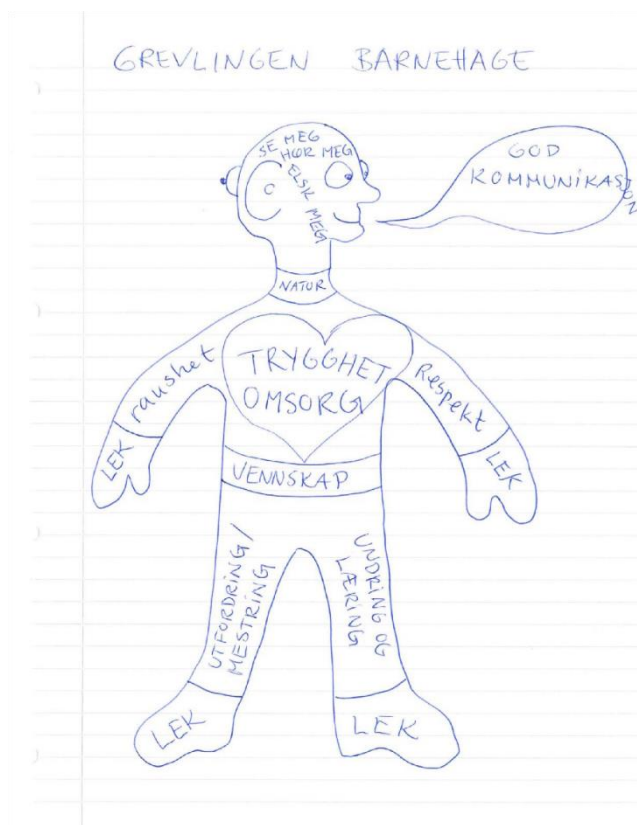 GREVLINGEN BARNEHAGE
SE MEG
HØR MEG
ELSK MEG
GOD
KOMMUNIKASJON
NATUR
raushet
TRYGGHET
OMSORG
Respekt
LEK
LEK
VENNSKAP
UTFORDRING/
MESTRING
UNDRING OG
LÆRING
LEK
LEK